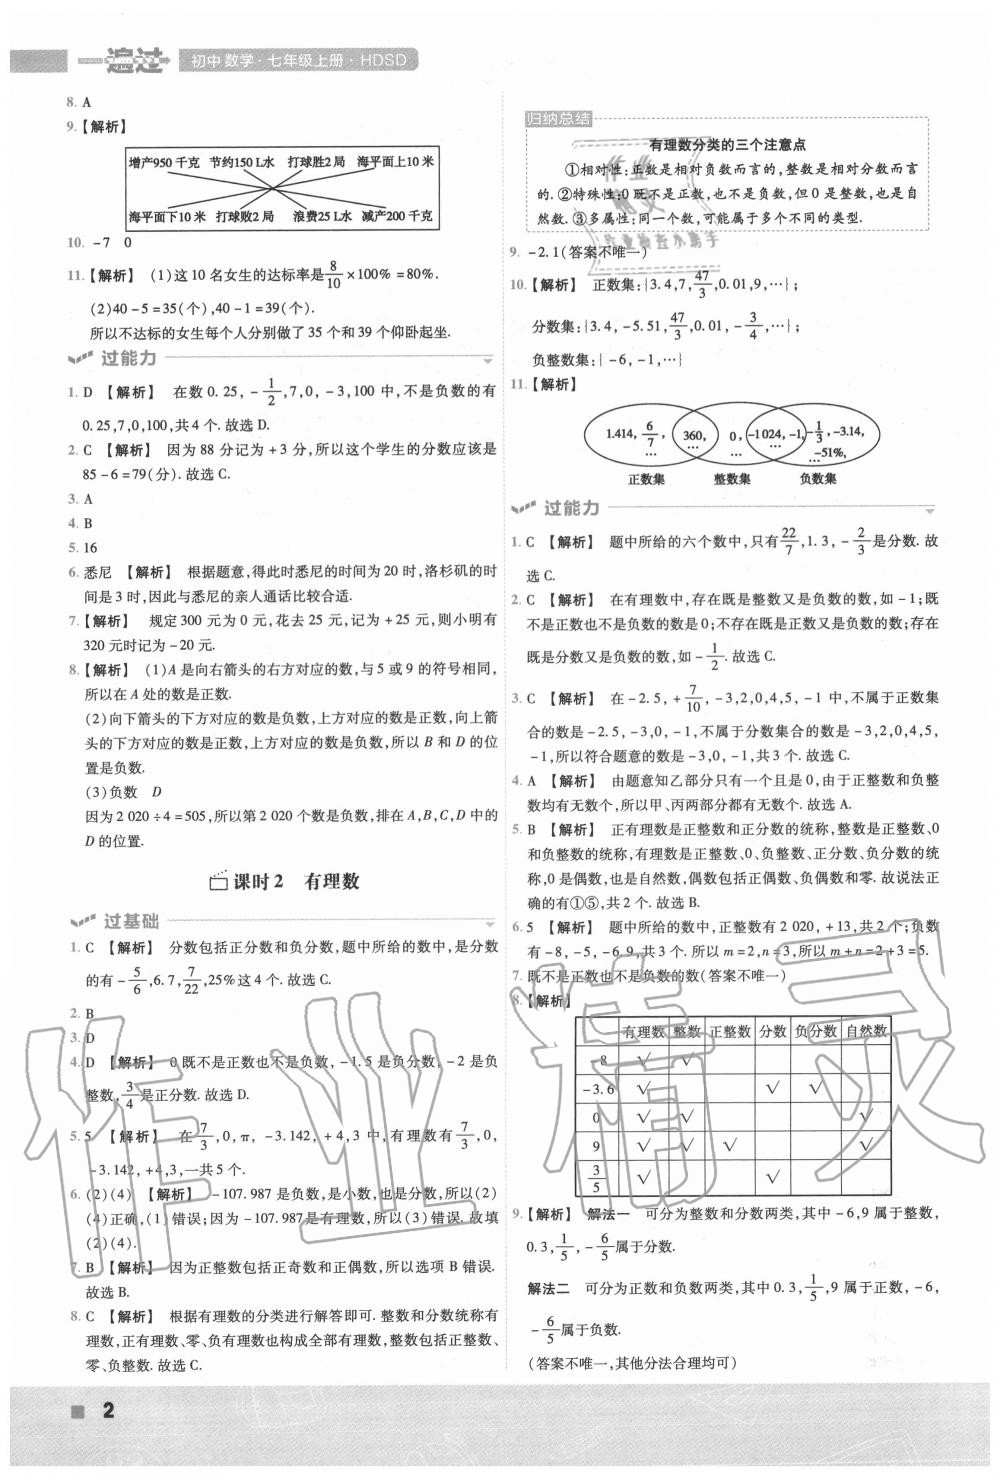 一遍过 初中数学·七年级上册·HDSD
8. A
9.【解析】
增产950 千克 节约150 L水 打球胜2 局 海平面上10 米
海平面下10 米 打球败2 局 浪费25 L水 减产200 千克
10. -7 0
11.【解析】 (1)这 10 名女生的达标率是8/10×100% =80%.
(2)40-5=35(个),40-1=39(个).
所以不达标的女生每个人分别做了 35 个和 39 个仰卧起坐.
过能力
1. D 【解析】 在数 0. 25, -1/2,7,0, -3,100 中,不是负数的有
0.25,7,0,100,共4 个. 故选 D.
2. C 【解析】 因为 88 分记为 +3 分,所以这个学生的分数应该是
85-6=79(分). 故选 C.
3. A
4. B
5. 16
6. 悉尼 【解析】 根据题意,得此时悉尼的时间为 20 时,洛杉矶的时
间是 3 时,因此与悉尼的亲人通话比较合适.
7.【解析】 规定 300 元为 0 元,花去 25 元,记为 +25 元,则小明有
320 元时记为 -20 元.
8.【解析】 (1)A 是向右箭头的右方对应的数,与 5 或 9 的符号相同,
所以在 A 处的数是正数.
(2)向下箭头的下方对应的数是负数,上方对应的数是正数,向上箭
头的下方对应的数是正数,上方对应的数是负数,所以 B 和 D 的位
置是负数.
(3)负数 D
因为 2 020÷4=505,所以第 2 020 个数是负数,排在 A,B,C,D 中的
D 的位置.
课时2 有理数
过基础
1. C 【解析】 分数包括正分数和负分数,题中所给的数中,是分数
的有 -5/6,6.7,7/22,25%这 4 个. 故选 C.
2. B
3. D
4. D 【解析】 0 既不是正数也不是负数, -1.5 是负分数, -2 是负
整数,3/4是正分数. 故选 D.
5. 5 【解析】 在7/3,0,π, -3.142, +4,3 中,有理数有7/3,0,
-3.142, +4,3,一共 5 个.
6. (2)(4) 【解析】 -107.987 是负数,是小数,也是分数,所以(2)
(4)正确,(1)错误;因为 -107.987是有理数,所以(3)错误. 故填
(2)(4).
7. B 【解析】 因为正整数包括正奇数和正偶数,所以选项 B 错误.
故选 B.
8. C 【解析】 根据有理数的分类进行解答即可. 整数和分数统称有
理数,正有理数、零、负有理数也构成全部有理数,整数包括正整数、
零、负整数. 故选 C.
归纳总结
有理数分类的三个注意点
①相对性:正数是相对负数而言的,整数是相对分数而言
的. ②特殊性:0 既不是正数,也不是负数,但 0 是整数,也是自
然数. ③多属性:同一个数,可能属于多个不同的类型.
9. -2.1(答案不唯一)
10.【解析】 正数集:{3.4,7,47/3,0.01,9,…};
分数集:{3.4, -5.51,47/3,0.01, -3/4,…};
负整数集:{ -6, -1,…}
11.【解析】
1.414, 6/7, … 360, … 0, … -1 024, -1, … -1/3, -3.14, -51%, …
正数集 整数集 负数集
过能力
1. C 【解析】 题中所给的六个数中,只有22/7,1.3, -2/3是分数. 故
选 C.
2. C 【解析】 在有理数中,存在既是整数又是负数的数,如 -1;既
不是正数也不是负数的数是 0;不存在既是正数又是负数的数;存在
既是分数又是负数的数,如 -1/2. 故选 C.
3. C 【解析】 在 -2.5, +7/10, -3,2,0,4,5, -1 中,不属于正数集
合的数是 -2.5, -3,0, -1,不属于分数集合的数是 -3,2,0,4,5,
-1,所以符合题意的数是 -3,0, -1,共 3 个. 故选 C.
4. A 【解析】 由题意知乙部分只有一个且是 0,由于正整数和负整
数均有无数个,所以甲、丙两部分都有无数个. 故选 A.
5. B 【解析】 正有理数是正整数和正分数的统称,整数是正整数、0
和负整数的统称,有理数是正整数、0、负整数、正分数、负分数的统
称,0 是偶数,也是自然数,偶数包括正偶数、负偶数和零. 故说法正
确的有①⑤,共 2 个. 故选 B.
6. 5 【解析】 题中所给的数中,正整数有 2 020, +13,共 2 个;负数
有 -8, -5, -6.9,共 3 个. 所以 m=2,n=3,所以 m+n=2+3=5.
7. 既不是正数也不是负数的数(答案不唯一)
8.【解析】
有理数 整数 正整数 分数 负分数 自然数
-8 √ √
-3.6 √ √ √
0 √ √ √
9 √ √ √ √
3/5 √ √
9.【解析】 解法一 可分为整数和分数两类,其中 -6,9 属于整数,
0.3,1/5, -6/5属于分数.
解法二 可分为正数和负数两类,其中 0.3,1/5,9 属于正数, -6,
-6/5属于负数.
(答案不唯一,其他分法合理均可)
2
作业精灵